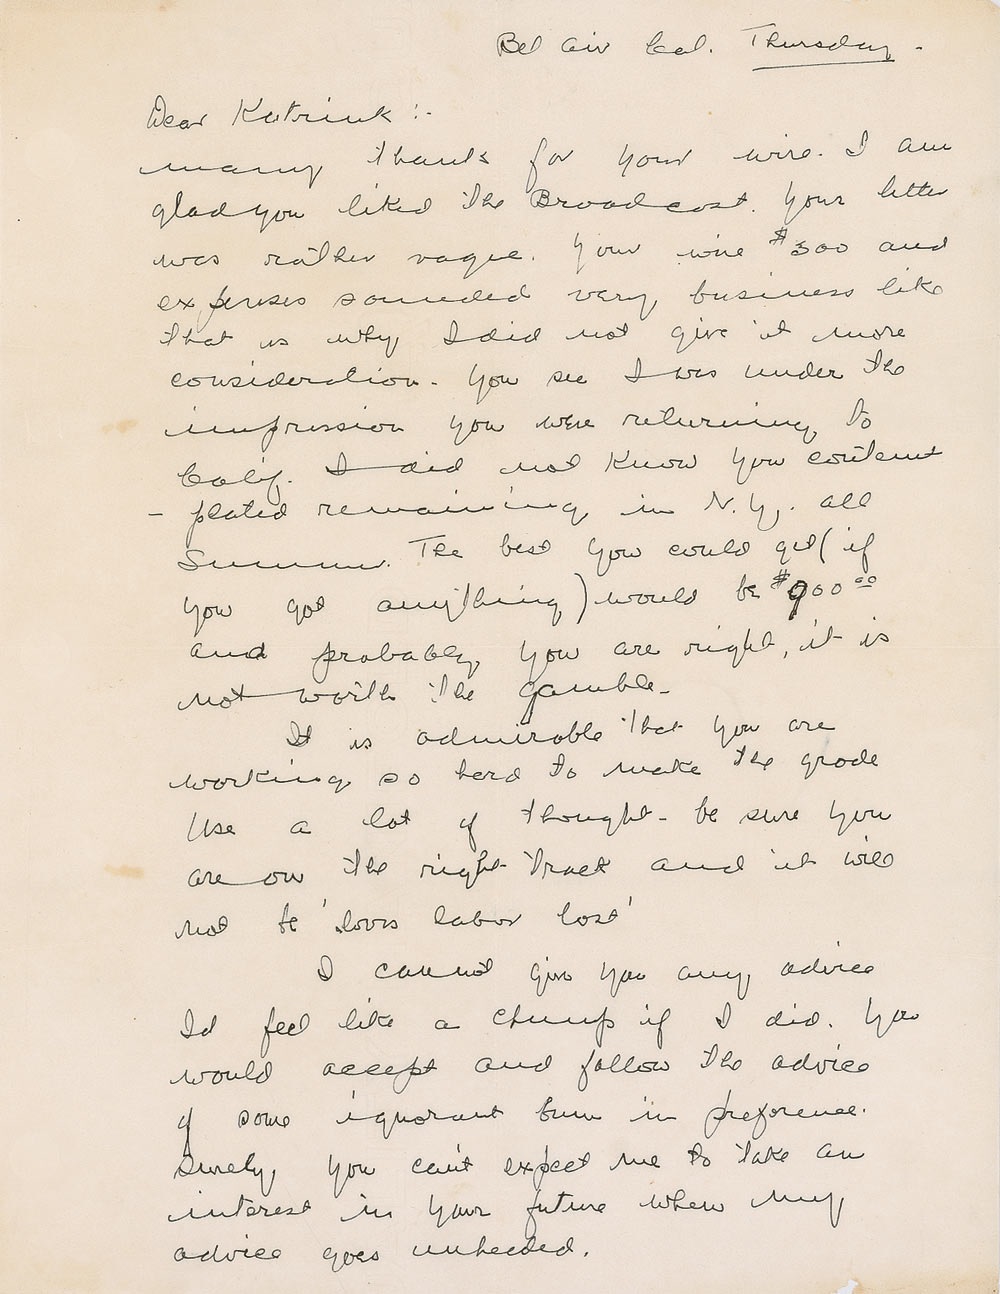 Bel Air Cal. Thursday -
Dear Katrink :-
many thanks for your wire. I am
glad you liked the Broadcast. Your letter
was rather vague. Your wire $300 and
expenses sounded very business like
that is why I did not give it more
consideration - You see I was under the
impression you were returning to
Calif. I did not know you contem
- plated remaining in N.Y. all
Summer. The best you could get (if
you got anything) would be $900 00
and probably you are right, it is
not worth the gamble -
It is admirable that you are
working so hard to make the grade
Use a lot of thought - be sure you
are on the right track and it will
not be 'loves labor lost'
I cannot give you any advice
Id feel like a chump if I did. You
would accept and follow the advice
of some ignorant bum in preference.
Surely you can't expect me to take an
interest in your future when my
advice goes unheeded.